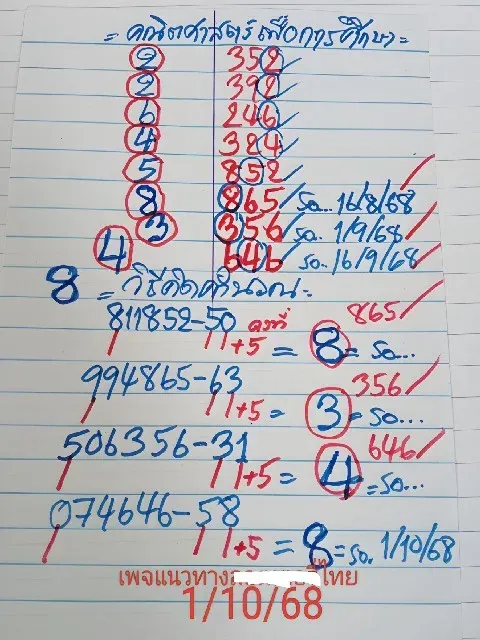 = คณิตศาสตร์เพื่อการศึกษา =
2 352
2 392
6 246
4 324
5 852
8 865 รอ... 16/8/68
3 356 รอ.. 1/9/68
4 646 รอ.. 16/9/68
8 = วิธีคิดคำนวณ =
865
811852-50 คงที่
+5 = 8 = รอ...
356
994865-63
+5 = 3 = รอ...
646
506356-31
+5 = 4 = รอ...
074646-58
+5 = 8 = รอ. 1/10/68
เพจแนวทาง ไทย
1/10/68